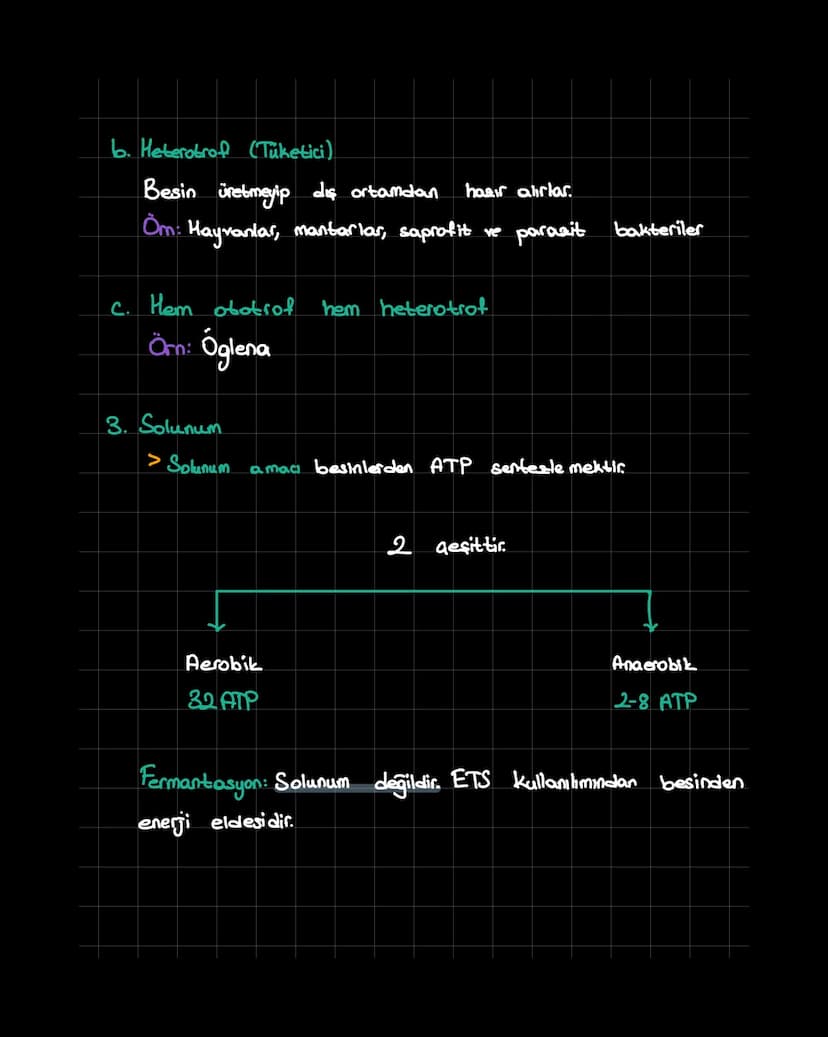 b. Heterotrof (Tüketici)
Besin üretmeyip dış ortamdan hazır alırlar.
Öm: Hayvanlar, mantarlar, saprofit ve parazit bakteriler
c. Hem ototrof hem heterotrof
Örn: Öglena
3. Solunum
> Solunum amacı besinlerden ATP sentezlemektir.
2 çeşittir.
Aerobik Anaerobik
32 ATP 2-8 ATP
Fermantasyon: Solunum değildir. ETS kullanılmından besinden
enerji eldesidir.